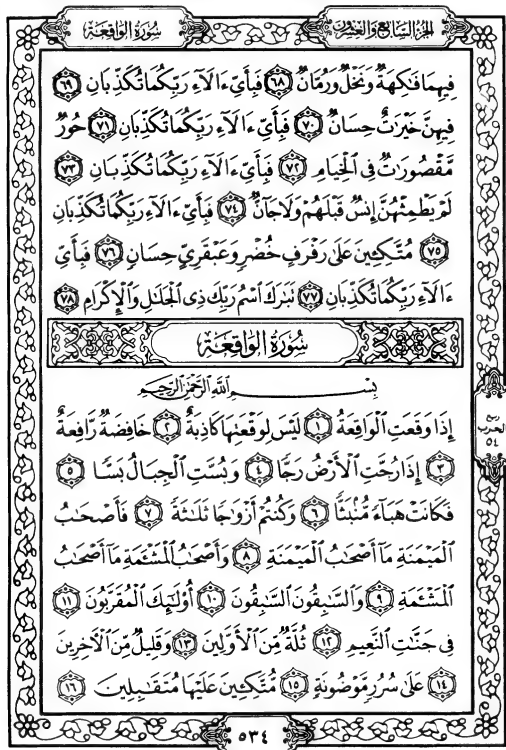 الجزء السابع والعشرون
سُورَةُ الوَاقِعَة
فِيهِمَا فَٰكِهَةٌ وَنَخْلٌ وَرُمَّانٌ ٦٨ فَبِأَيِّ ءَالَآءِ رَبِّكُمَا تُكَذِّبَانِ ٦٩
فِيهِنَّ خَيْرَٰتٌ حِسَانٌ ٧٠ فَبِأَيِّ ءَالَآءِ رَبِّكُمَا تُكَذِّبَانِ ٧١ حُورٌ
مَّقْصُورَٰتٌ فِي ٱلْخِيَامِ ٧٢ فَبِأَيِّ ءَالَآءِ رَبِّكُمَا تُكَذِّبَانِ ٧٣
لَمْ يَطْمِثْهُنَّ إِنسٌ قَبْلَهُمْ وَلَا جَآنٌّ ٧٤ فَبِأَيِّ ءَالَآءِ رَبِّكُمَا تُكَذِّبَانِ
٧٥ مُتَّكِـِٔينَ عَلَىٰ رَفْرَفٍ خُضْرٍ وَعَبْقَرِيٍّ حِسَانٍ ٧٦ فَبِأَيِّ
ءَالَآءِ رَبِّكُمَا تُكَذِّبَانِ ٧٧ تَبَٰرَكَ ٱسْمُ رَبِّكَ ذِي ٱلْجَلَٰلِ وَٱلْإِكْرَامِ ٧٨
سُورَةُ الوَاقِعَة
بِسْمِ ٱللَّهِ ٱلرَّحْمَٰنِ ٱلرَّحِيمِ
إِذَا وَقَعَتِ ٱلْوَاقِعَةُ ١ لَيْسَ لِوَقْعَتِهَا كَاذِبَةٌ ٢ خَافِضَةٌ رَّافِعَةٌ
٣ إِذَا رُجَّتِ ٱلْأَرْضُ رَجًّا ٤ وَبُسَّتِ ٱلْجِبَالُ بَسًّا ٥
فَكَانَتْ هَبَآءً مُّنۢبَثًّا ٦ وَكُنتُمْ أَزْوَٰجًا ثَلَٰثَةً ٧ فَأَصْحَٰبُ
ٱلْمَيْمَنَةِ مَآ أَصْحَٰبُ ٱلْمَيْمَنَةِ ٨ وَأَصْحَٰبُ ٱلْمَشْـَٔمَةِ مَآ أَصْحَٰبُ
ٱلْمَشْـَٔمَةِ ٩ وَٱلسَّٰبِقُونَ ٱلسَّٰبِقُونَ ١٠ أُو۟لَٰٓئِكَ ٱلْمُقَرَّبُونَ ١١
فِي جَنَّٰتِ ٱلنَّعِيمِ ١٢ ثُلَّةٌ مِّنَ ٱلْأَوَّلِينَ ١٣ وَقَلِيلٌ مِّنَ ٱلْءَاخِرِينَ
١٤ عَلَىٰ سُرُرٍ مَّوْضُونَةٍ ١٥ مُّتَّكِـِٔينَ عَلَيْهَا مُتَقَٰبِلِينَ ١٦
ربع
الحزب
٥٤
٥٣٤